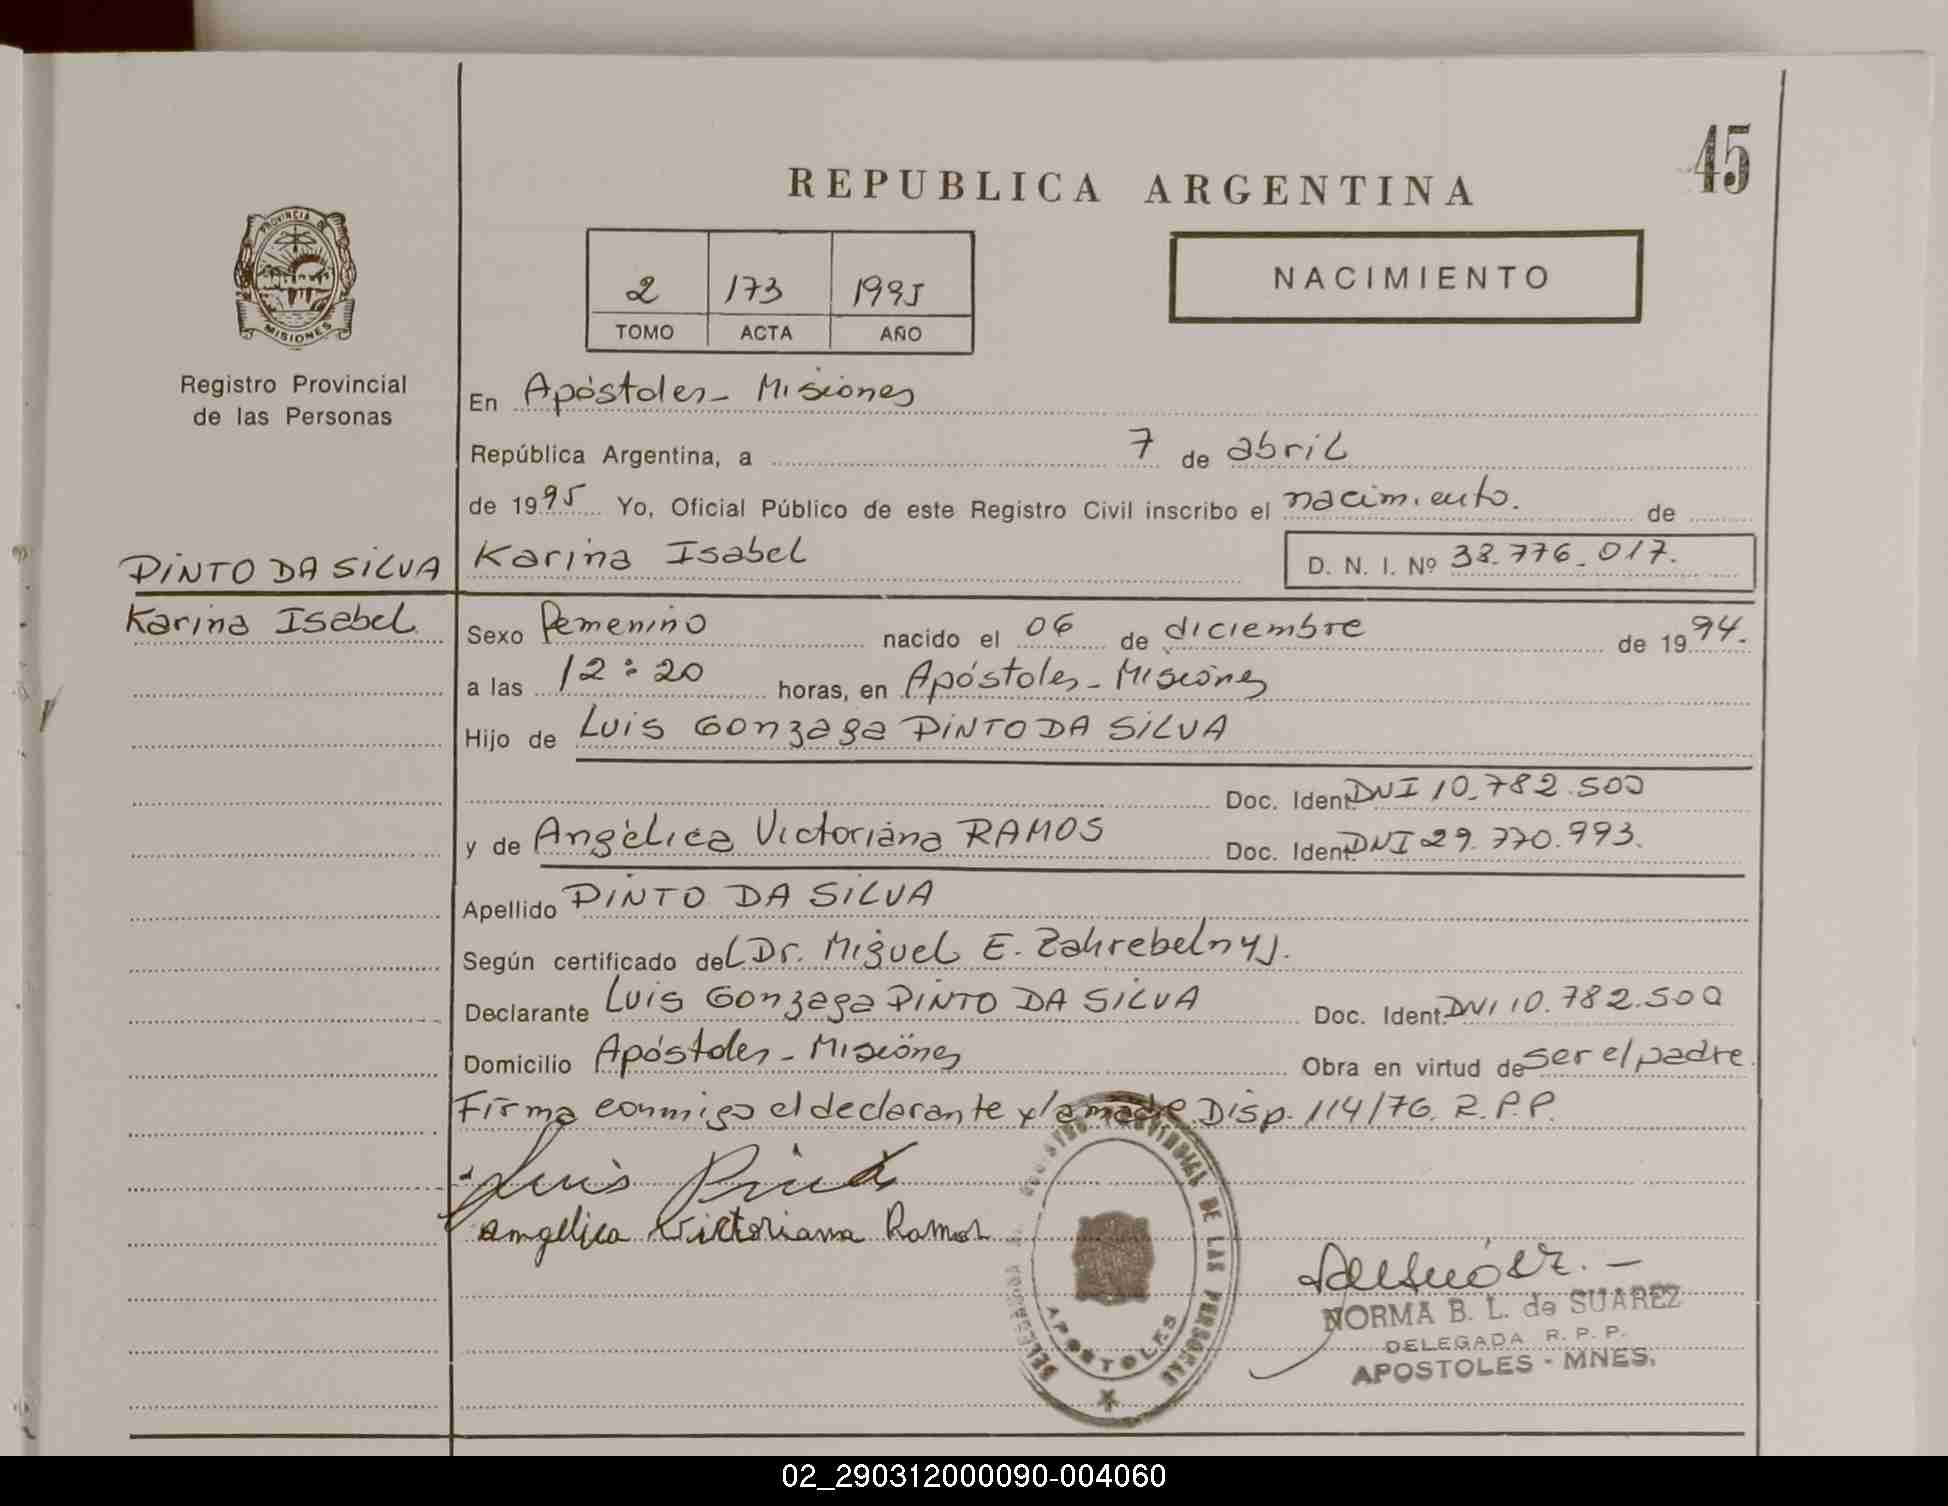 45
REPUBLICA ARGENTINA
PROVINCIA DE
MISIONES
2 173 1995
TOMO ACTA AÑO
NACIMIENTO
Registro Provincial
de las Personas
En Apóstoles - Misiones
República Argentina, a 7 de abril
de 1995 Yo, Oficial Público de este Registro Civil inscribo el nacimiento. de
PINTO DA SILVA Karina Isabel D. N. I. Nº 38.776.017.
Karina Isabel Sexo Femenino nacido el 06 de diciembre de 1994.
a las 12:20 horas, en Apóstoles - Misiones
Hijo de Luis Gonzaga PINTO DA SILVA
Doc. Ident. DNI 10.782.500
y de Angélica Victoriana RAMOS Doc. Ident. DNI 29.770.993.
Apellido PINTO DA SILVA
Según certificado del Dr. Miguel E. Zahrebelnyj.
Declarante Luis Gonzaga PINTO DA SILVA Doc. Ident. DNI 10.782.500
Domicilio Apóstoles - Misiones Obra en virtud de ser el padre.
Firma conmigo el declarante y la madre. Disp. 114/76. R.P.P.
Luis Pinto
Angelica Victoriana Ramos
PROVINCIAL DE LAS PERSONAS
APOSTOLES
NORMA B. L. de SUAREZ
DELEGADA R. P. P.
APOSTOLES - MNES.
02_290312000090-004060